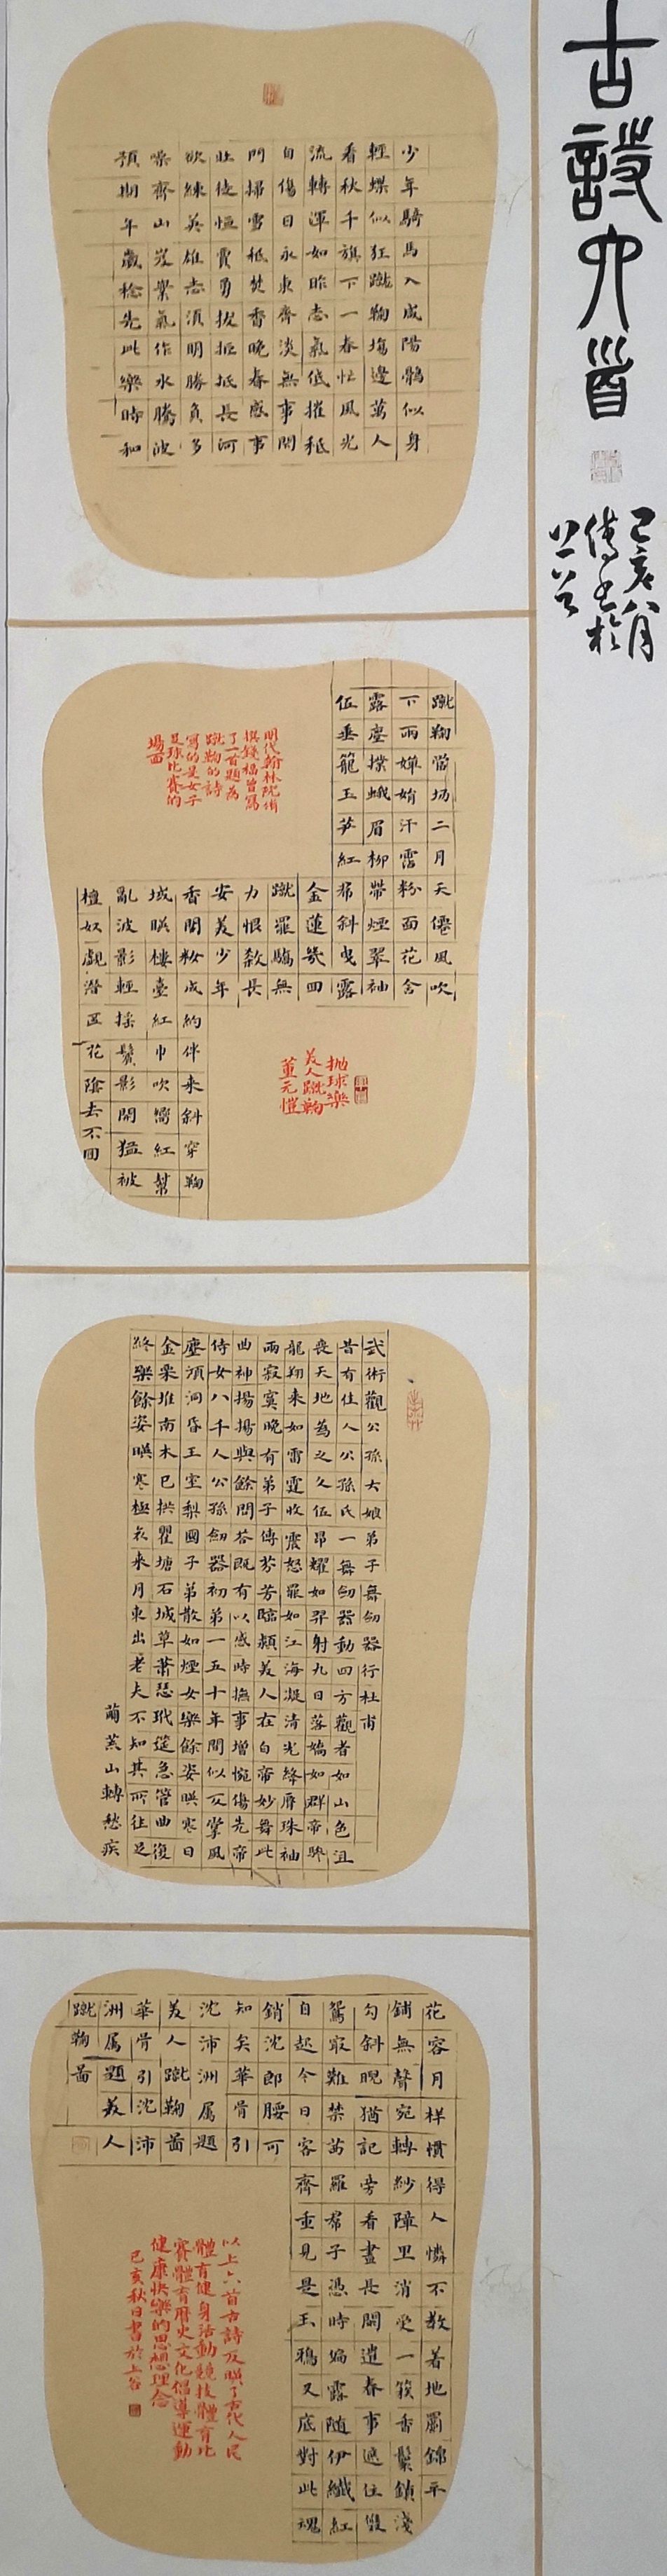 古詩六首
己亥八月
傅書於
上谷
少年騎馬入咸陽鶻似身
輕蝶似狂蹴鞠場邊萬人
看秋千旗下一春忙風光
流轉渾如昨志氣低摧秖
自傷日永東齋淡無事閉
門掃雪秖焚香晚春感事
壯徒恒賈勇拔拒抵長河
欲練英雄志須明勝負多
噪齊山岌嶪氣作水騰波
預期年歲稔先此樂時和
蹴鞠當場二月天僊風吹
下兩嬋娟汗霑粉面花含
露塵撲蛾眉柳帶煙翠袖
低垂籠玉笋紅帬斜曳露
金蓮幾回
蹴罷驕無
力恨殺長
安美少年
明代翰林院脩
撰錢福曾寫
了一首題為
蹴鞠的詩
寫的是女子
足球比賽的
場面
香閨妝成約伴來斜穿鞠
域暎樓臺紅巾吹嚮紅幫
亂波影輕揺鬢影開猛被
檀奴覷潛匿花陰去不回
拋球樂
美人蹴鞠
董元愷
武術觀公孫大娘弟子舞劍器行杜甫
昔有佳人公孫氏一舞劍器動四方觀者如山色沮
喪天地為之久低昂㸌如羿射九日落嬌如群帝驂
龍翔來如雷霆收震怒罷如江海凝清光絳唇珠袖
兩寂寞晚有弟子傳芬芳臨潁美人在白帝妙舞此
曲神揚揚與餘問答既有以感時撫事增惋傷先帝
侍女八千人公孫劍器初第一五十年間似反掌風
塵澒洞昏王室梨園子弟散如煙女樂餘姿暎寒日
金粟堆南木已拱瞿塘石城草蕭瑟玳筵急管曲復
終樂餘姿暎寒極哀來月東出老夫不知其所往足
繭荒山轉愁疾
花容月樣慣得人憐不教着地罽錦平
鋪無聲宛轉紗障里消受一簇香鬟鎖淺
勾斜睨猶記旁看晝長閒遣春事遮住緞
鴛寂難禁茜羅帬子憑時偏露隨伊纖紅
自起今日客齊重見是玉鴉叉底對此魂
銷沈郎腰可
知矣華骨引
沈沛洲屬題
美人蹴鞠畫
華骨引沈沛
洲屬題美人
蹴鞠畫
以上六首古詩反暎了古代人民
體育健身活動競技體育比
賽體育歷史文化倡導運動
健康快樂的思想理念
己亥秋日書於上谷